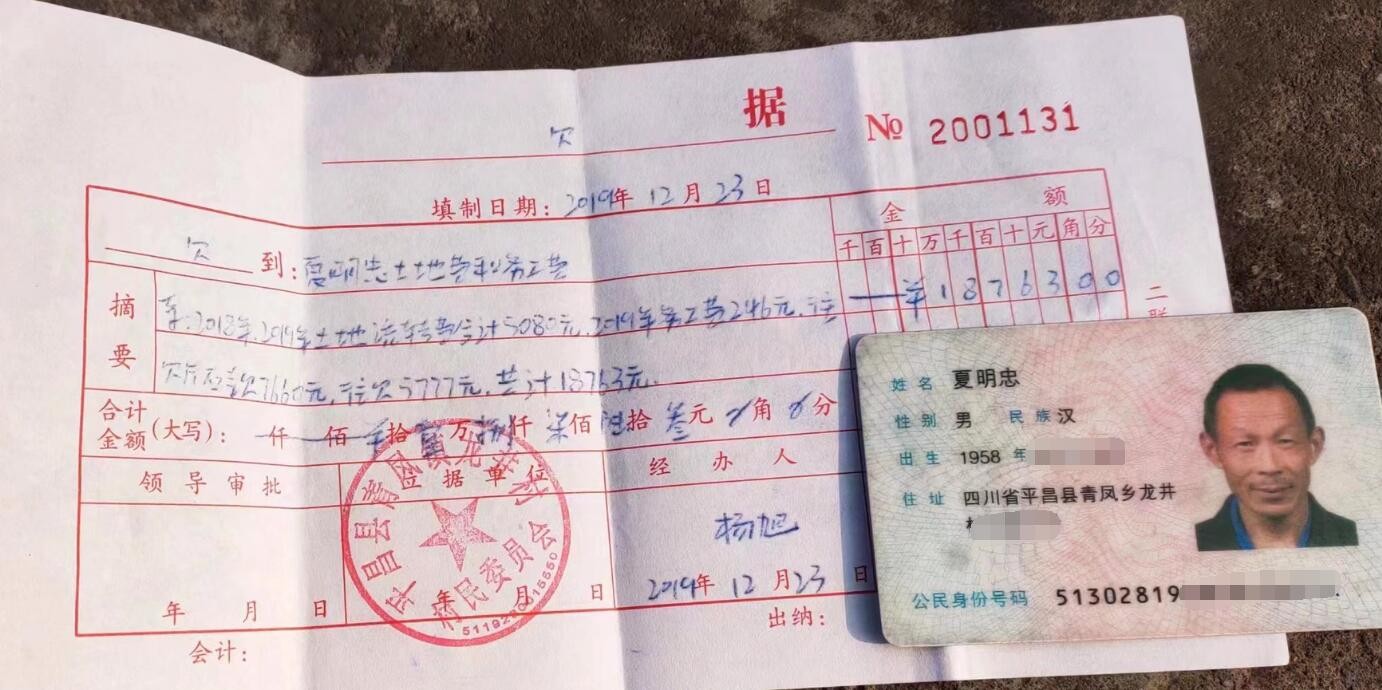 欠 据 № 2001131
填制日期：2019年 12 月 23 日
金 额
欠 到：夏明忠土地费和务工费
千 百 十 万 千 百 十 元 角 分
¥ 1 8 7 6 3 0 0
摘要
2018年、2019年土地流转费合计5080元，2019年务工费246元，
欠 7660元， 欠5777元，共计18763元。
二联
合计金额(大写)： 仟 佰 拾 壹万 捌仟 柒佰 陆拾 叁元 角 分
领导审批 立据单位 经办人
平昌县青凤镇龙井村
村民委员会
5119230015550
杨旭
年 月 日 年 月 日 2019年 12 月 23 日
会计： 出纳：
姓名 夏明忠
性别 男 民族 汉
出生 1958 年
住址 四川省平昌县青凤乡龙井
公民身份号码 51302819